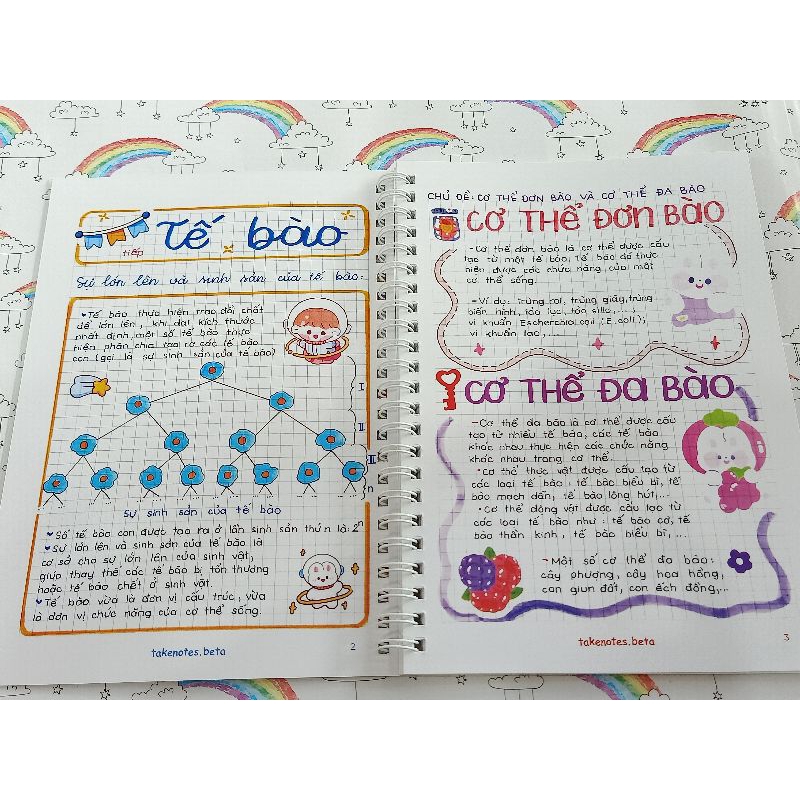 tiếp
Tế bào
Sự lớn lên và sinh sản của tế bào:
Tế bào thực hiện trao đổi chất
để lớn lên, khi đạt kích thước
nhất định một số tế bào thực
hiện phân chia tạo ra các tế bào
con (gọi là sự sinh sản của tế bào)
I
II
III
n
Sự sinh sản của tế bào
Số tế bào con được tạo ra ở lần sinh sản thứ n là: 2ⁿ
Sự lớn lên và sinh sản của tế bào là
cơ sở cho sự lớn lên của sinh vật,
giúp thay thế các tế bào bị tổn thương
hoặc tế bào chết ở sinh vật.
Tế bào vừa là đơn vị cấu trúc, vừa
là đơn vị chức năng của cơ thể sống.
takenotes.beta
2
CHỦ ĐỀ: CƠ THỂ ĐƠN BÀO VÀ CƠ THỂ ĐA BÀO
CƠ THỂ ĐƠN BÀO
- Cơ thể đơn bào là cơ thể được cấu
tạo từ một tế bào, tế bào đó thực
hiện được các chức năng của một
cơ thể sống.
- Ví dụ: trùng roi, trùng giày, trùng
biến hình, tảo lục, tảo silic,...,
vi khuẩn Escherchia coli (E. coli),
vi khuẩn lao,...
CƠ THỂ ĐA BÀO
- Cơ thể đa bào là cơ thể được cấu
tạo từ nhiều tế bào, các tế bào
khác nhau thực hiện các chức năng
khác nhau trong cơ thể.
• Cơ thể thực vật được cấu tạo từ
các loại tế bào: tế bào biểu bì, tế
bào mạch dẫn, tế bào lông hút,...
• Cơ thể động vật được cấu tạo từ
các loại tế bào như: tế bào cơ, tế
bào thần kinh, tế bào biểu bì,...
- Một số cơ thể đa bào:
cây phượng, cây hoa hồng,
con giun đất, con ếch đồng,...
takenotes.beta
3